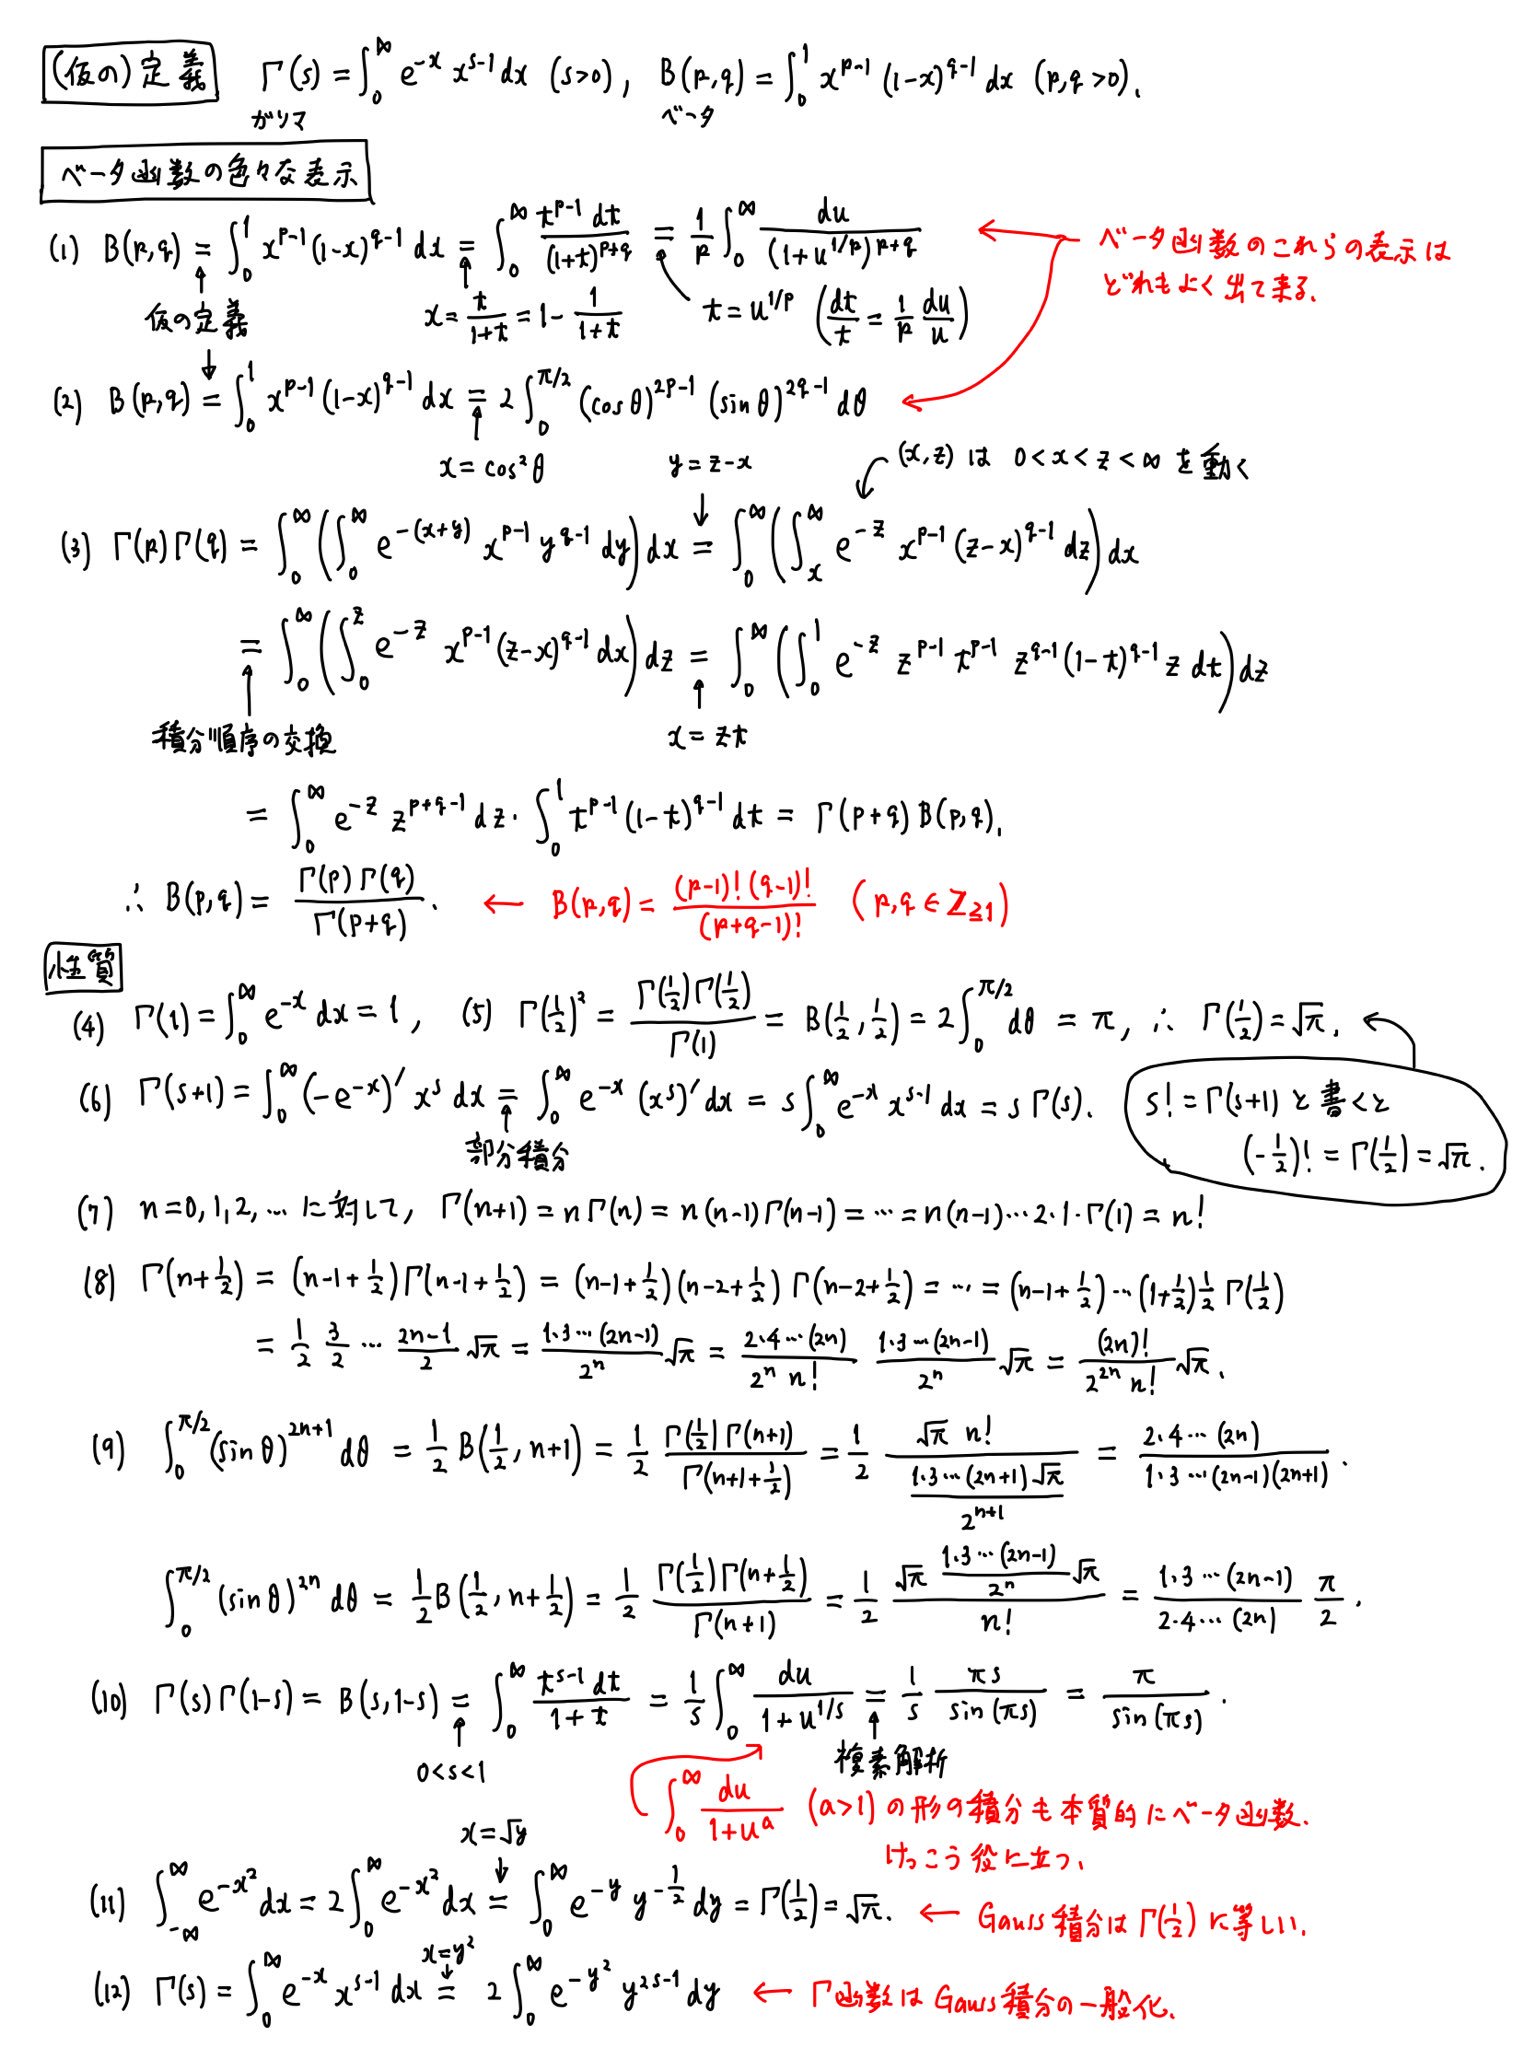 (仮の)定義 Γ(s) = ∫_0^∞ e^{-x} x^{s-1} dx (s>0), B(p,q) = ∫_0^1 x^{p-1} (1-x)^{q-1} dx (p,q>0).
ガンマ ベータ
ベータ函数の色々な表示
(1) B(p,q) = ∫_0^1 x^{p-1} (1-x)^{q-1} dx = ∫_0^∞ \frac{t^{p-1} dt}{(1+t)^{p+q}} = \frac{1}{p} ∫_0^∞ \frac{du}{(1+u^{1/p})^{p+q}} ← ベータ函数のこれらの表示は
どれもよく出て来る.
↑ 仮の定義 ↓ ↑ x = \frac{t}{1+t} = 1 - \frac{1}{1+t} t = u^{1/p} (\frac{dt}{t} = \frac{1}{p} \frac{du}{u})
(2) B(p,q) = ∫_0^1 x^{p-1} (1-x)^{q-1} dx = 2∫_0^{π/2} (cos θ)^{2p-1} (sin θ)^{2q-1} dθ ←
↑ x = cos² θ y = z-x (x,z) は 0<x<z<∞ を動く
(3) Γ(p)Γ(q) = ∫_0^∞ (∫_0^∞ e^{-(x+y)} x^{p-1} y^{q-1} dy) dx = ∫_0^∞ (∫_x^∞ e^{-z} x^{p-1} (z-x)^{q-1} dz) dx
= ∫_0^∞ (∫_0^z e^{-z} x^{p-1} (z-x)^{q-1} dx) dz = ∫_0^∞ (∫_0^1 e^{-z} z^{p-1} t^{p-1} z^{q-1} (1-t)^{q-1} z dt) dz
↑ 積分順序の交換 ↑ x = zt
= ∫_0^∞ e^{-z} z^{p+q-1} dz · ∫_0^1 t^{p-1} (1-t)^{q-1} dt = Γ(p+q) B(p,q).
∴ B(p,q) = \frac{Γ(p)Γ(q)}{Γ(p+q)}. ← B(p,q) = \frac{(p-1)!(q-1)!}{(p+q-1)!} (p,q ∈ ℤ_{≧1})
性質
(4) Γ(1) = ∫_0^∞ e^{-x} dx = 1, (5) Γ(\frac{1}{2})² = \frac{Γ(\frac{1}{2})Γ(\frac{1}{2})}{Γ(1)} = B(\frac{1}{2},\frac{1}{2}) = 2∫_0^{π/2} dθ = π, ∴ Γ(\frac{1}{2}) = √π. ←
(6) Γ(s+1) = ∫_0^∞ (-e^{-x})' x^s dx = ∫_0^∞ e^{-x} (x^s)' dx = s∫_0^∞ e^{-x} x^{s-1} dx = sΓ(s).
↑ 部分積分
s! = Γ(s+1) と書くと
(-\frac{1}{2})! = Γ(\frac{1}{2}) = √π.
(7) n=0,1,2,… に対して, Γ(n+1) = nΓ(n) = n(n-1)Γ(n-1) = … = n(n-1)…2·1·Γ(1) = n!
(8) Γ(n+\frac{1}{2}) = (n-1+\frac{1}{2})Γ(n-1+\frac{1}{2}) = (n-1+\frac{1}{2})(n-2+\frac{1}{2})Γ(n-2+\frac{1}{2}) = … = (n-1+\frac{1}{2})…(1+\frac{1}{2})\frac{1}{2}Γ(\frac{1}{2})
= \frac{1}{2} \frac{3}{2} … \frac{2n-1}{2} √π = \frac{1·3…(2n-1)}{2^n} √π = \frac{2·4…(2n)}{2^n n!} \frac{1·3…(2n-1)}{2^n} √π = \frac{(2n)!}{2^{2n} n!} √π.
(9) ∫_0^{π/2} (sin θ)^{2n+1} dθ = \frac{1}{2} B(\frac{1}{2}, n+1) = \frac{1}{2} \frac{Γ(\frac{1}{2})Γ(n+1)}{Γ(n+1+\frac{1}{2})} = \frac{1}{2} \frac{√π n!}{\frac{1·3…(2n+1)√π}{2^{n+1}}} = \frac{2·4…(2n)}{1·3…(2n-1)(2n+1)}.
∫_0^{π/2} (sin θ)^{2n} dθ = \frac{1}{2} B(\frac{1}{2}, n+\frac{1}{2}) = \frac{1}{2} \frac{Γ(\frac{1}{2})Γ(n+\frac{1}{2})}{Γ(n+1)} = \frac{1}{2} \frac{√π \frac{1·3…(2n-1)}{2^n} √π}{n!} = \frac{1·3…(2n-1)}{2·4…(2n)} \frac{π}{2}.
(10) Γ(s)Γ(1-s) = B(s,1-s) = ∫_0^∞ \frac{t^{s-1} dt}{1+t} = \frac{1}{s} ∫_0^∞ \frac{du}{1+u^{1/s}} = \frac{1}{s} \frac{πs}{sin(πs)} = \frac{π}{sin(πs)}.
↑ 0<s<1 ↑ 複素解析
∫_0^∞ \frac{du}{1+u^a} (a>1) の形の積分も本質的にベータ函数.
けっこう役に立つ.
x=√y
(11) ∫_{-∞}^∞ e^{-x²} dx = 2∫_0^∞ e^{-x²} dx = ∫_0^∞ e^{-y} y^{-\frac{1}{2}} dy = Γ(\frac{1}{2}) = √π. ← Gauss積分はΓ(\frac{1}{2})に等しい.
x=y²
(12) Γ(s) = ∫_0^∞ e^{-x} x^{s-1} dx = 2∫_0^∞ e^{-y²} y^{2s-1} dy ← Γ函数はGauss積分の一般化.